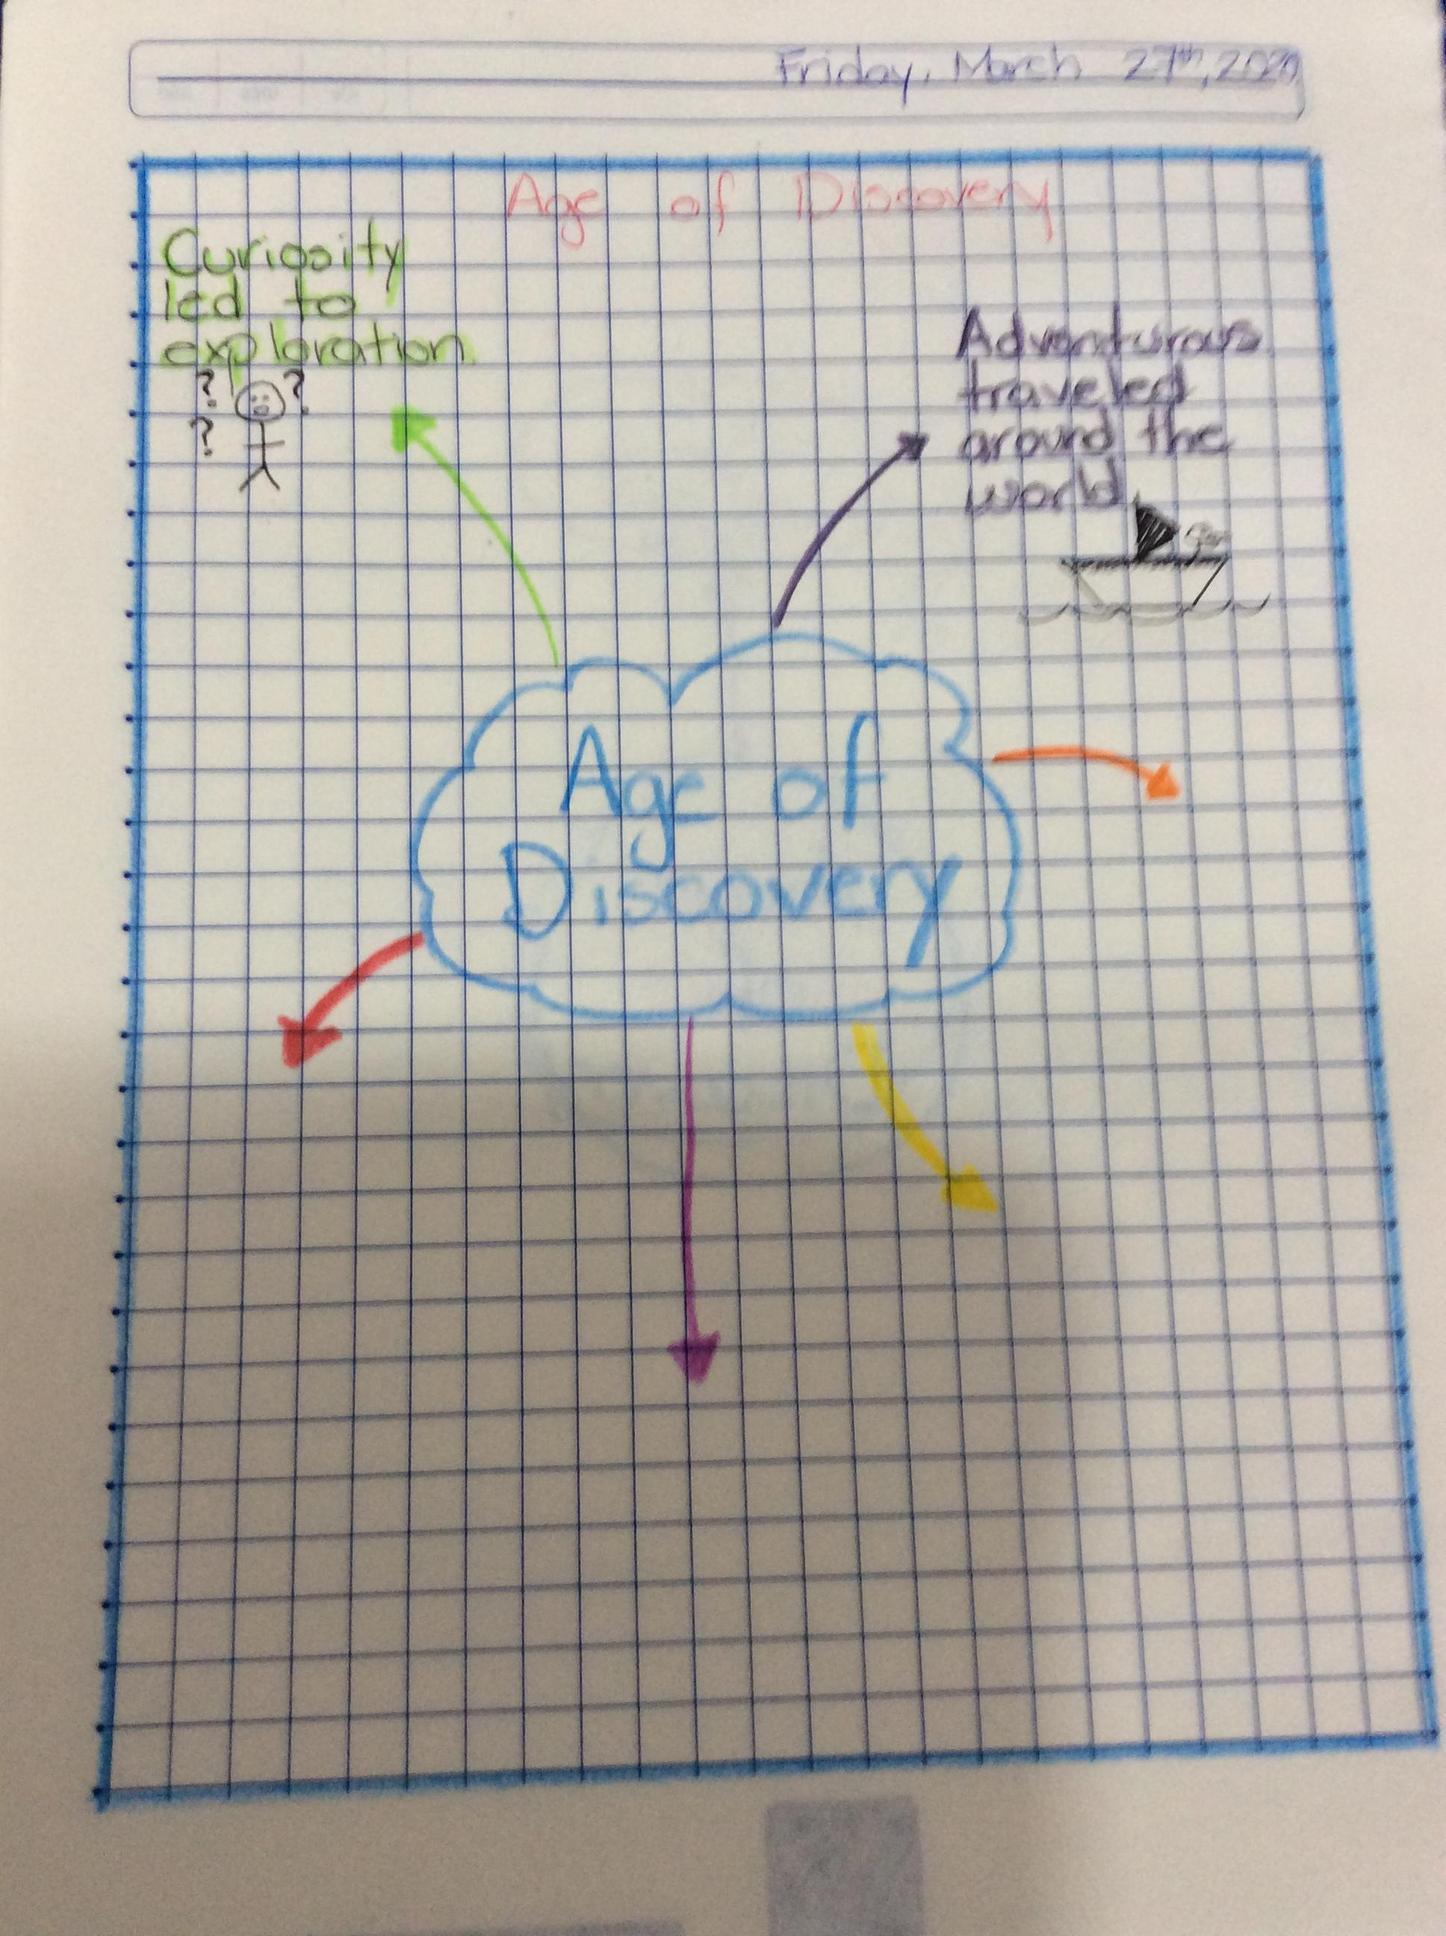 Friday, March 27th, 2020
Age of Discovery
Curiosity
led to
exploration.
? ?
?
Adventurous
traveled
around the
world.
Age of
Discovery